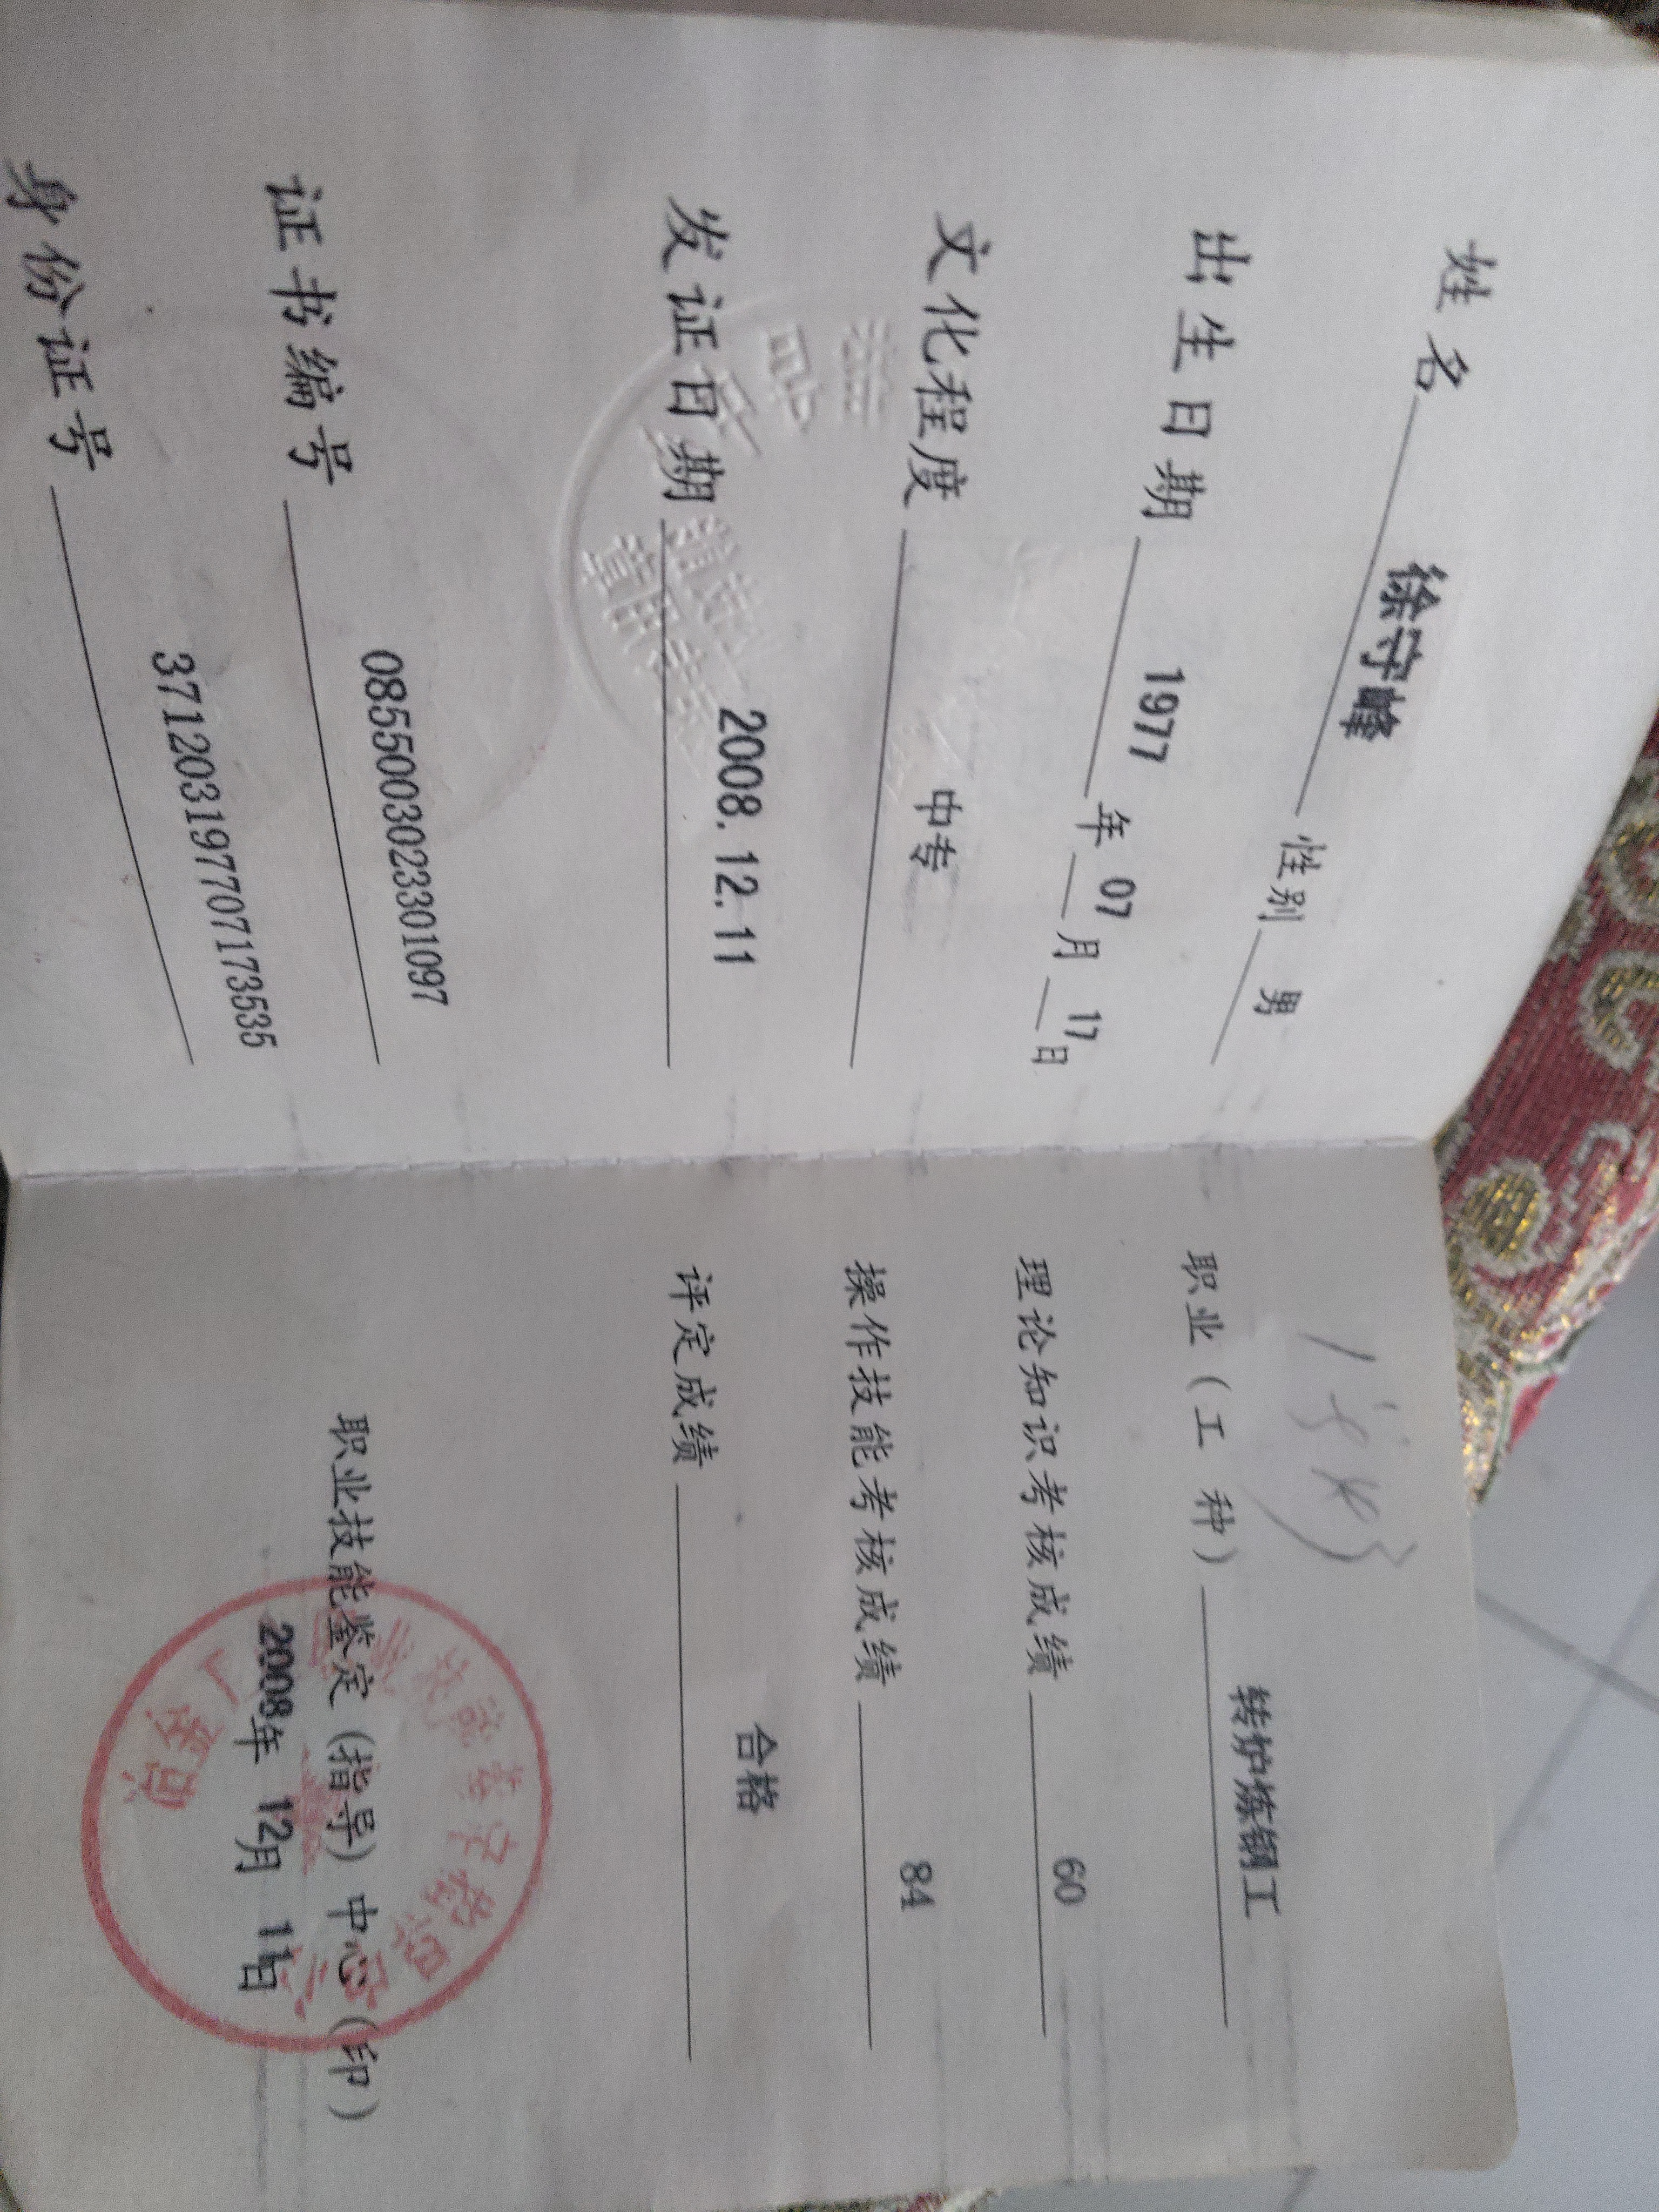 姓名 徐守峰 性别 男
出生日期 1977 年 07 月 17 日
文化程度 中专
发证日期 2008.12.11
证书编号 0855003023301097
身份证号 371203197707173535
职业（工 种） 转炉炼钢工
理论知识考核成绩 60
操作技能考核成绩 84
评定成绩 合格
职业技能鉴定（指导）中心（印）
2008年 12月 11日